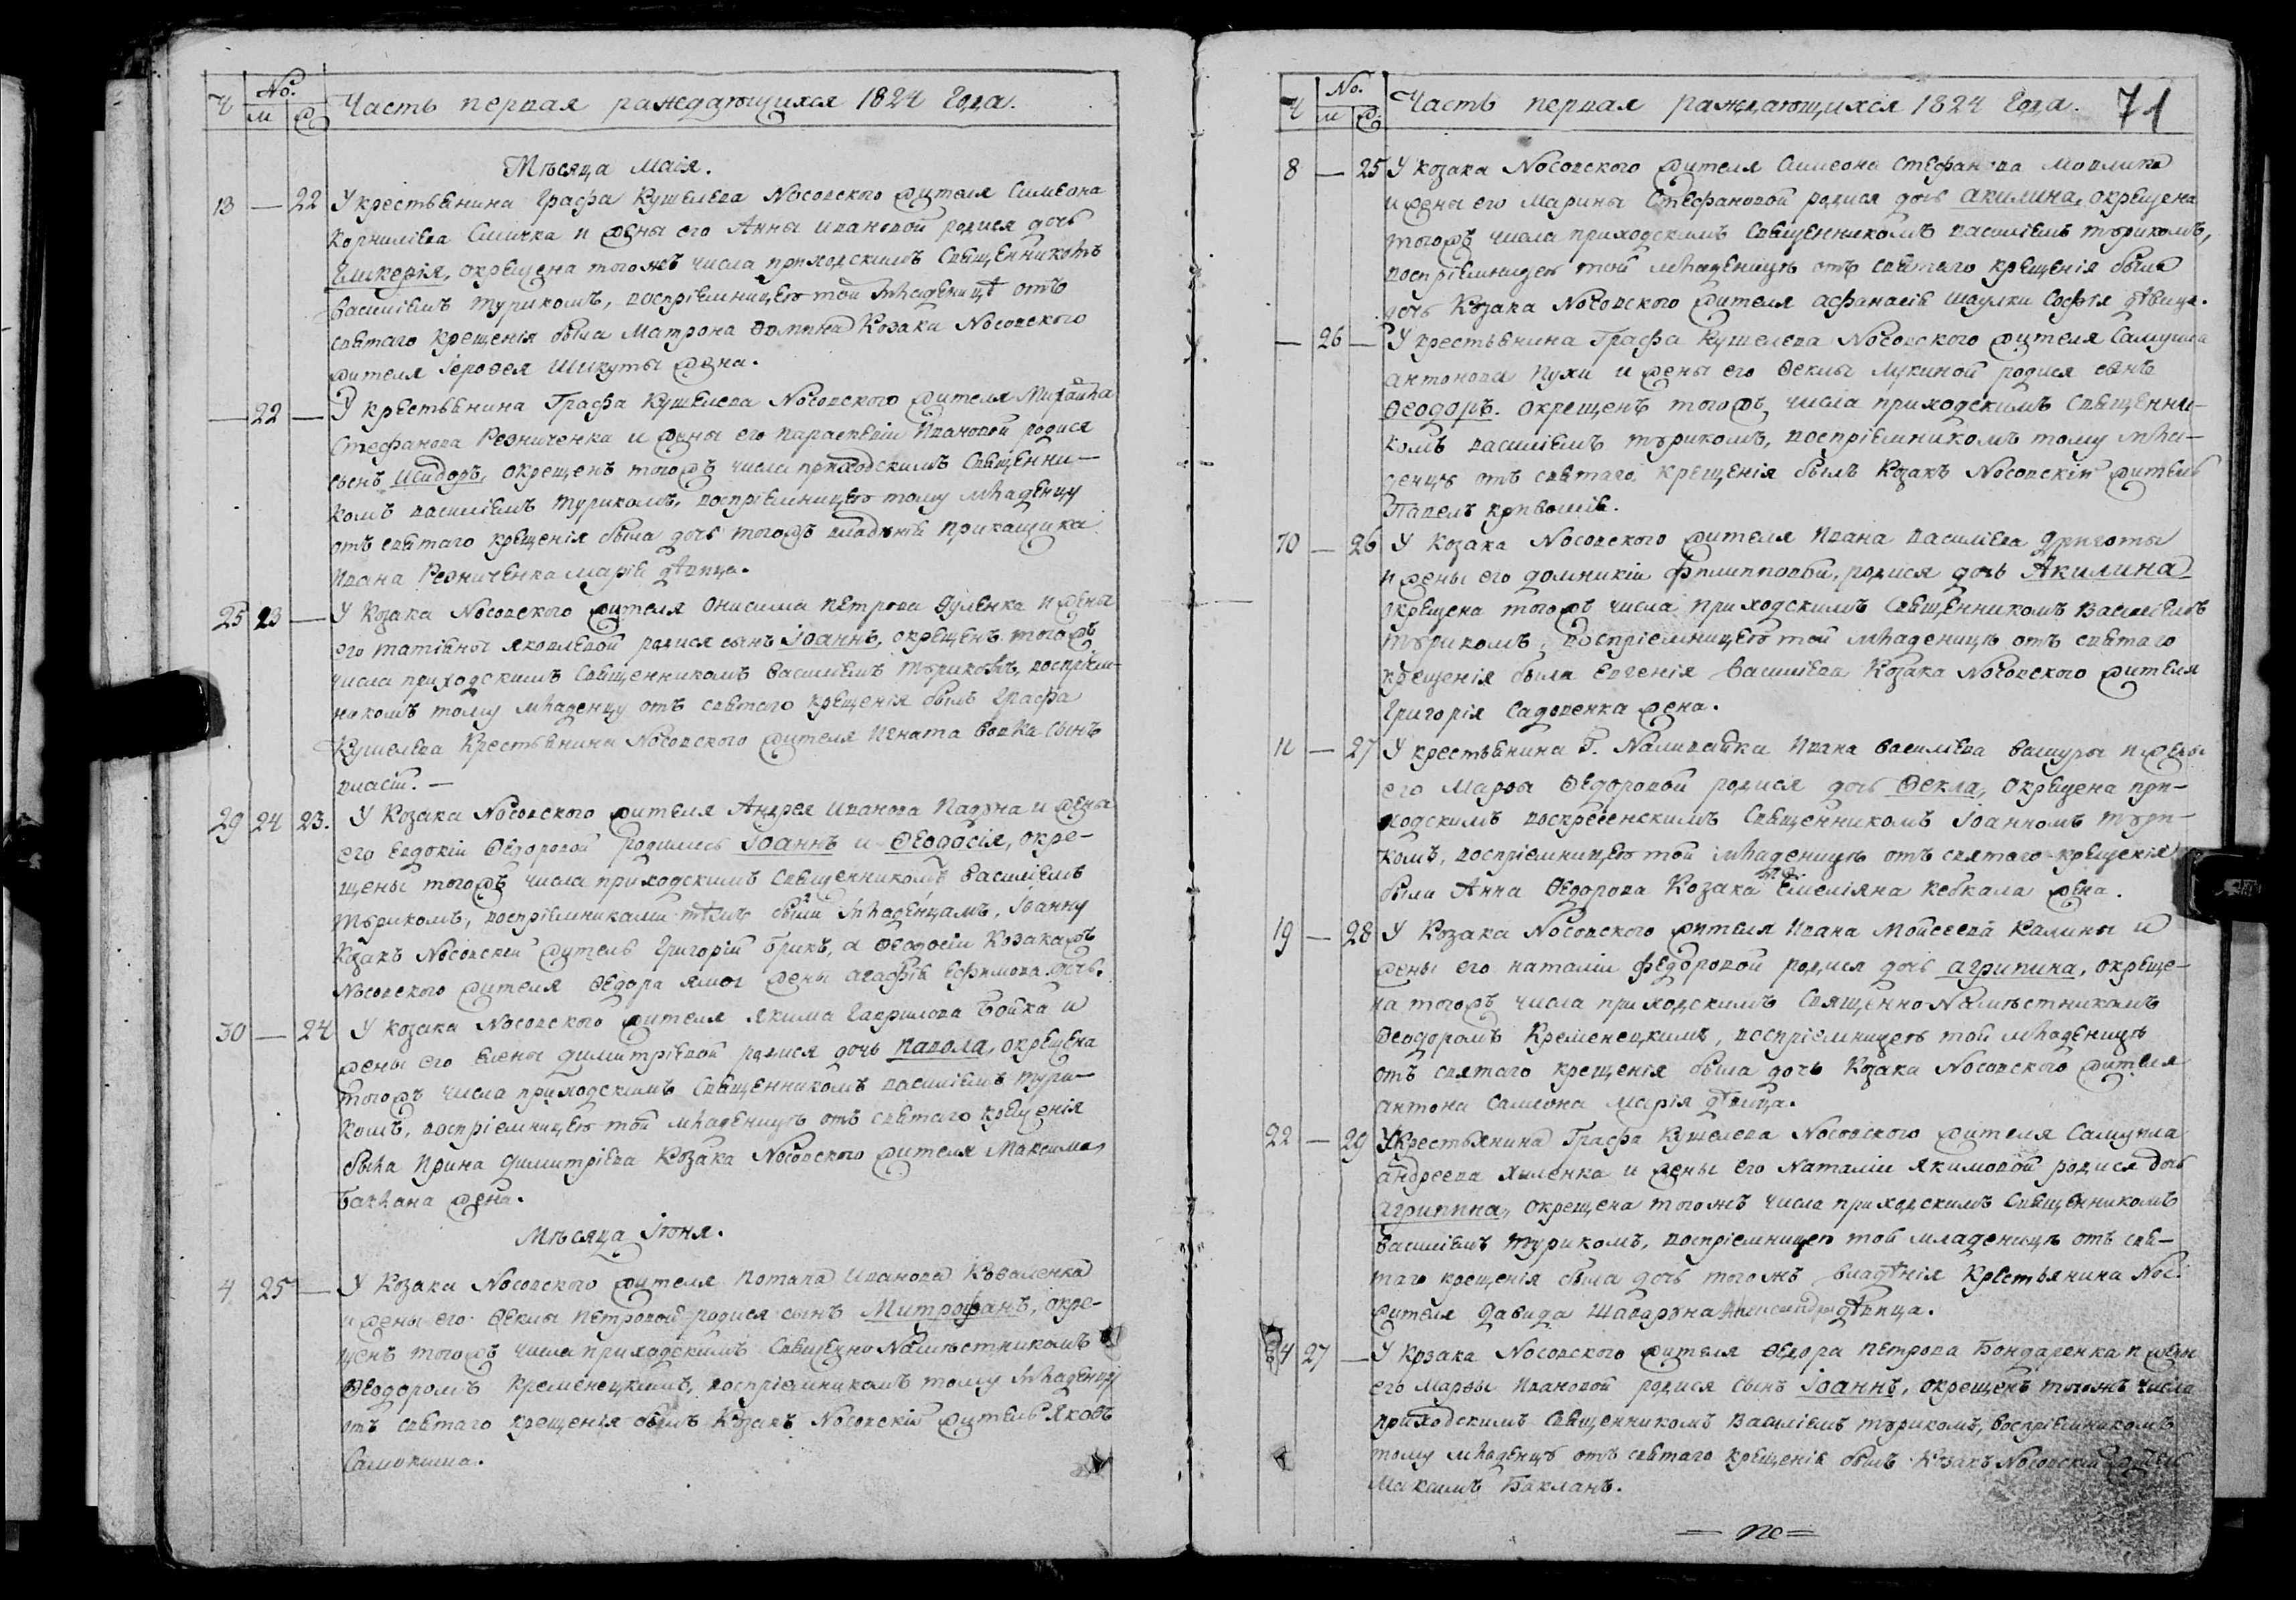 Ч № м ж Часть первая раждающихся 1824 Года.
Мѣсяца Маія.
13 — 22 У крестьянина Графа Кушелева Носовского жителя Симеона
Корнилієва Силичка и жены его Анны Ивановой родися дочь
Гликерія, окрещена тогожъ числа приходскимъ Священникомъ
Василіемъ Турикомъ, воспріемницею той младеницѣ отъ
святаго Крещенія была Матрона Козака Носовского
жителя Іерофея Шикуты жена.
— 22 — У крестьянина Графа Кушелева Носовского жителя Михаила
Стефанова Резниченка и жены его Параскевіи Ивановой родися
сынъ Исидоръ, окрещенъ тогожъ числа приходскимъ Священни-
комъ Василіемъ Турикомъ, воспріемницею тому младенцу
отъ святаго крещенія была дочь тогожъ владѣнія прикащика
Ивана Резниченка Марія дѣвица.
25 23 — У Козака Носовского жителя Онисима Петрова Дуленка и жены
его Татіяны Яковлевой родися сынъ Іоаннъ, окрещенъ тогожъ
числа приходскимъ Священникомъ Василіемъ Турикомъ, воспріем-
никомъ тому младенцу отъ святаго крещенія былъ Графа
Кушелева Крестьянина Носовского жителя Игната Вовка сынъ
Власій. —
29 24 23. У Козака Носовского жителя Андрея Иванова Падуна и жены
его Евдокіи Ѳедоровой родились Іоаннъ и Ѳеодосія, окре-
щены тогожъ числа приходскимъ Священникомъ Василіемъ
Турикомъ, воспріемниками тѣмъ были младенцамъ, Іоанну
Козакъ Носовскій житель Григорій Брикъ, а Ѳеодосіи Козака жъ
Носовского жителя Ѳедора жены Агафія Ефимова дочь.
30 — 24 У козака Носовского жителя Якима Гаврилова Бойка и
жены его Елены Димитріевой родися дочь Павола, окрещена
тогожъ числа приходскимъ Священникомъ Василіемъ Тури-
комъ, воспріемницею той младеницѣ отъ святаго крещенія
была Ирина Димитріева Козака Носовского жителя Максима
Баклана жена.
Мѣсяца Іюня.
4 25 — У Козака Носовского жителя Потапа Иванова Коваленка
и жены его Ѳеклы Петровой родися сынъ Митрофанъ, окре-
щенъ тогожъ числа приходскимъ Священно Намѣстникомъ
Ѳеодоромъ Кременецкимъ, воспріемникомъ тому младенцу
отъ святаго крещенія былъ Козакъ Носовскій житель Яковъ
Самокиша.
Ч № м ж Часть первая раждающихся 1824 Года. 71
8 — 25 У козака Носовского жителя Симеона Стефанова Мовлика
и жены его Марины Стефановой родися дочь Акилина, окрещена
тогожъ числа приходскимъ Священникомъ Василіемъ Турикомъ,
воспріемницею той младеницѣ отъ святаго крещенія была
дочь Козака Носовского жителя Афанасія Шаулки Софія дѣвица.
— 26 — У крестьянина Графа Кушелева Носовского жителя Самуила
Антонова Пухи и жены его Ѳеклы Лукиной родися сынъ
Ѳеодоръ. Окрещенъ тогожъ числа приходскимъ Священни-
комъ Василіемъ Турикомъ, воспріемникомъ тому мла-
денцу отъ святаго крещенія былъ Козакъ Носовскій житель
Павелъ Кривошія.
10 — 26 У Козака Носовского жителя Ивана Василіева Дриготы
и жены его Домникіи Филипповой, родися дочь Акилина
окрещена тогожъ числа приходскимъ Священникомъ Василіемъ
Турикомъ, воспріемницею той младеницѣ отъ святаго
крещенія была Евгенія Василіева Козака Носовского жителя
Григорія Садовенка жена.
11 — 27 У крестьянина Г. Наливайка Ивана Василіева Вашуры и жены
его Марѳы Ѳедоровой родися дочь Ѳекла, окрещена при-
ходскимъ Воскресенскимъ Священникомъ Іоанномъ Тури-
комъ, воспріемницею той младеницѣ отъ святаго крещенія
была Анна Ѳедорова Козака Емеліяна Кебкала жена.
19 — 28 У Козака Носовского жителя Ивана Мойсеева Калины и
жены его Наталіи Федоровой родися дочь Агрипина, окреще-
на тогожъ числа приходскимъ Священно Намѣстникомъ
Ѳеодоромъ Кременецкимъ, воспріемницею той младеницѣ
отъ святаго крещенія была дочь Козака Носовского жителя
Антона Самсона Марія дѣвица.
22 — 29 У Крестьянина Графа Кушелева Носовского жителя Самуила
Андреева Хиленка и жены его Наталіи Якимовой родися дочь
Агрипина, окрещена тогожъ числа приходскимъ Священникомъ
Василіемъ Турикомъ, воспріемницею той младеницѣ отъ свя-
таго крещенія была дочь тогожъ владѣнія Крестьянина Нос.
жителя Давида Шапаруна Александра дѣвица.
24 27 — У Козака Носовского жителя Ѳедора Петрова Бондаренка и жены
его Марѳы Ивановой родися сынъ Іоаннъ, окрещенъ тогожъ числа
приходскимъ Священникомъ Василіемъ Турикомъ, воспріемникомъ
тому младенцу отъ святаго крещенія былъ Козакъ Носовскій житель
Максимъ Бакланъ.